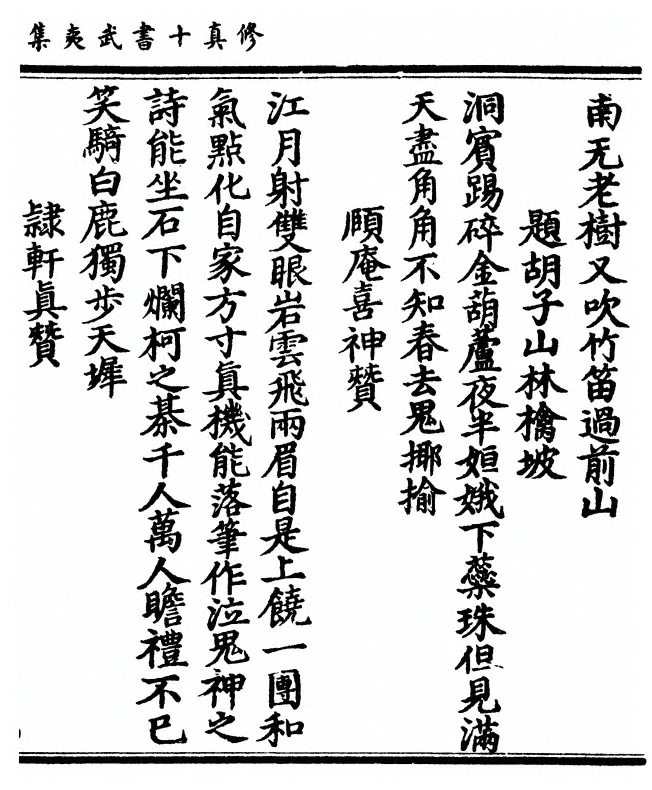 修真十書武夷集
南无老樹又吹竹笛過前山
題胡子山林檎坡
洞賓踢碎金葫蘆夜半姮娥下蘂珠但見滿
天盡角角不知春去鬼揶揄
頥庵喜神贊
江月射雙眼岩雲飛兩眉自是上饒一團和
氣點化自家方寸眞機能落筆作泣鬼神之
詩能坐石下爛柯之棊千人萬人瞻禮不已
笑騎白鹿獨步天墀
隷軒眞贊